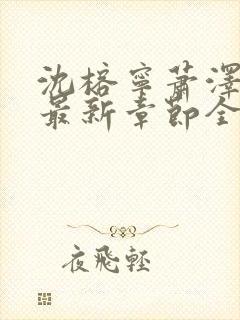 沈榕寧蕭澤
最新章節全
夜飛輕